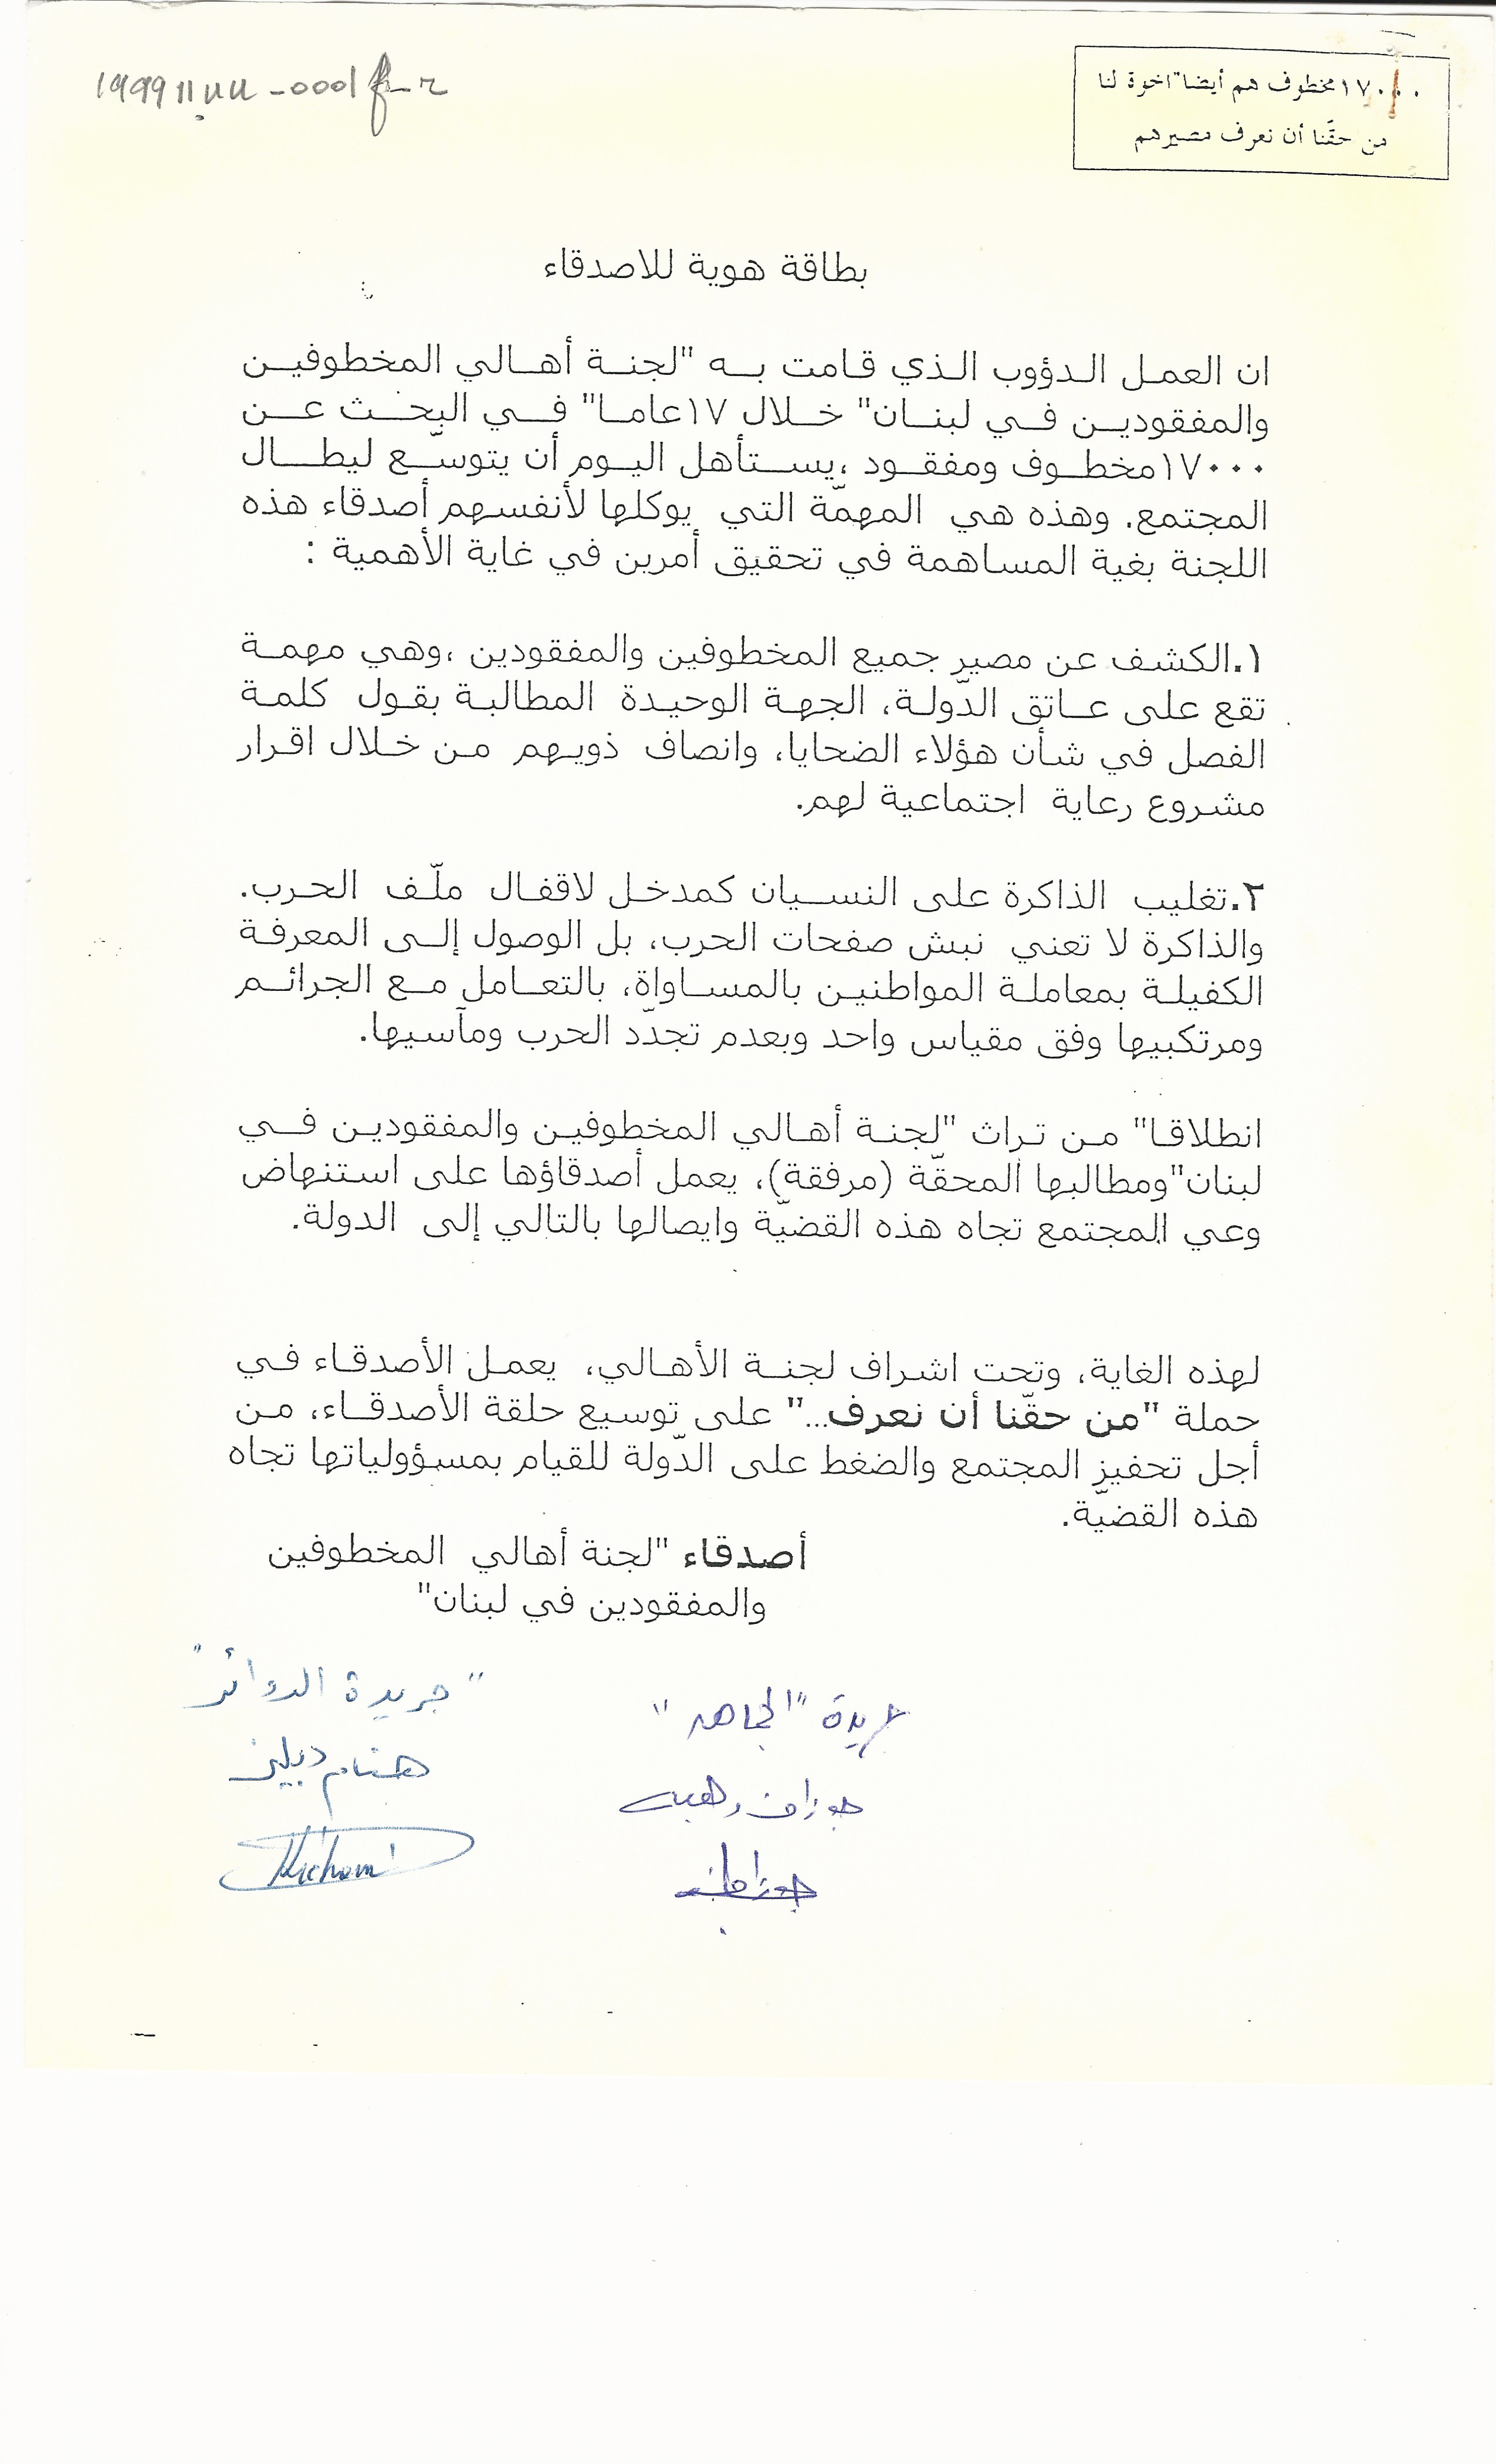 19991122-0001f-r
١٧٠٠٠ مخطوف هم أيضا" اخوة لنا
من حقّنا أن نعرف مصيرهم
بطاقة هوية للاصدقاء
ان العمل الدؤوب الذي قامت به "لجنة أهالي المخطوفين
والمفقودين في لبنان" خلال ١٧عاما" في البحث عن
١٧٠٠٠مخطوف ومفقود ،يستأهل اليوم أن يتوسّع ليطال
المجتمع. وهذه هي المهمّة التي يوكلها لأنفسهم أصدقاء هذه
اللجنة بغية المساهمة في تحقيق أمرين في غاية الأهمية :
١.الكشف عن مصير جميع المخطوفين والمفقودين ،وهي مهمة
تقع على عاتق الدّولة، الجهة الوحيدة المطالبة بقول كلمة
الفصل في شأن هؤلاء الضحايا، وانصاف ذويهم من خلال اقرار
مشروع رعاية اجتماعية لهم.
٢.تغليب الذاكرة على النسيان كمدخل لاقفال ملّف الحرب.
والذاكرة لا تعني نبش صفحات الحرب، بل الوصول إلى المعرفة
الكفيلة بمعاملة المواطنين بالمساواة، بالتعامل مع الجرائم
ومرتكبيها وفق مقياس واحد وبعدم تجدّد الحرب ومآسيها.
انطلاقا" من تراث "لجنة أهالي المخطوفين والمفقودين في
لبنان"ومطالبها المحقّة (مرفقة)، يعمل أصدقاؤها على استنهاض
وعي المجتمع تجاه هذه القضيّة وايصالها بالتالي إلى الدولة.
لهذه الغاية، وتحت اشراف لجنة الأهالي، يعمل الأصدقاء في
حملة "من حقّنا أن نعرف..." على توسيع حلقة الأصدقاء، من
أجل تحفيز المجتمع والضغط على الدّولة للقيام بمسؤولياتها تجاه
هذه القضيّة.
أصدقاء "لجنة أهالي المخطوفين
والمفقودين في لبنان"
جريدة "
"جريدة الدوائر"
جوزاف وهبه
هشام
Hicham